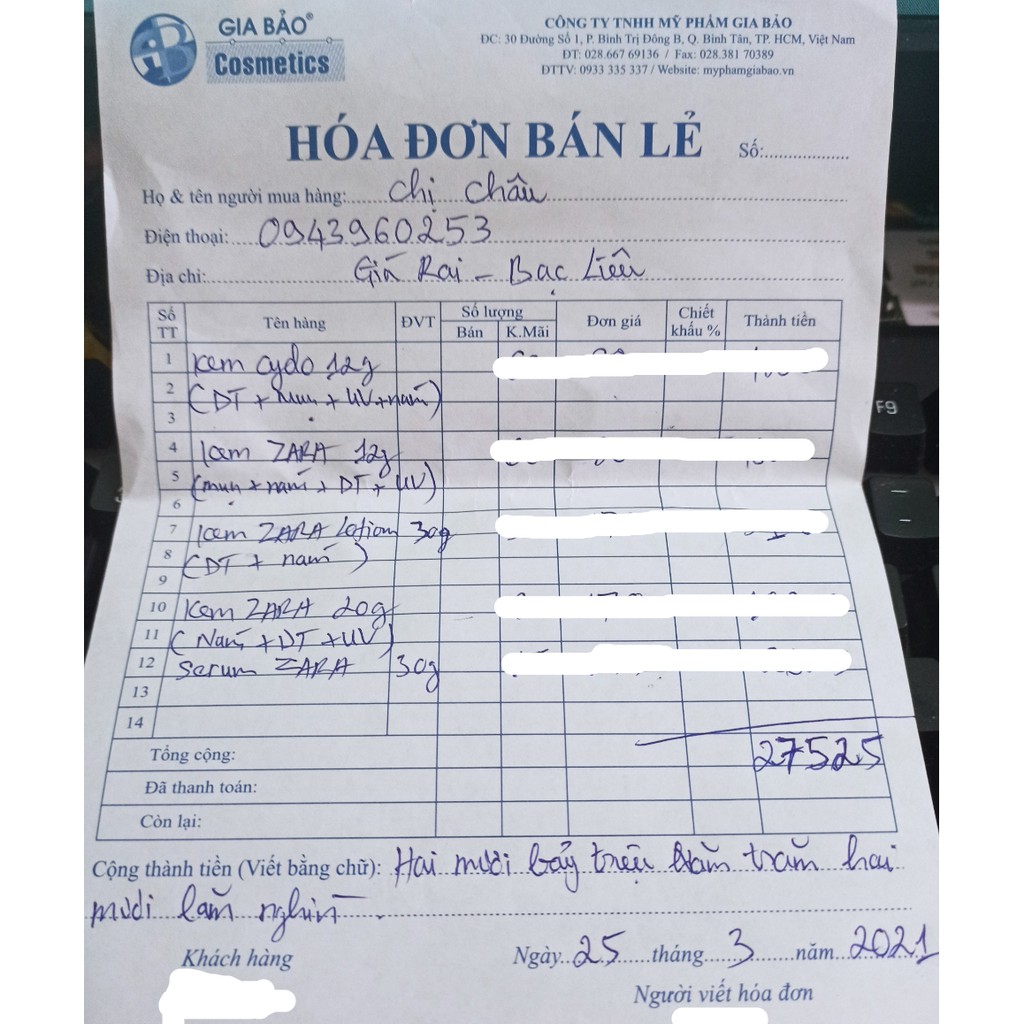 GIA BẢO®
Cosmetics
CÔNG TY TNHH MỸ PHẨM GIA BẢO
ĐC: 30 Đường Số 1, P. Bình Trị Đông B, Q. Bình Tân, TP. HCM, Việt Nam
ĐT: 028.667 69136 / Fax: 028.381 70389
ĐTTV: 0933 335 337 / Website: myphamgiabao.vn
HÓA ĐƠN BÁN LẺ
Số:
Họ & tên người mua hàng: chị Châu
Điện thoại: 0943960253
Địa chỉ: Giá Rai - Bạc Liêu
Số TT Tên hàng ĐVT Số lượng Bán K.Mãi Đơn giá Chiết khấu % Thành tiền
1 Kem Cydo 12g
2 (DT + mụn + UV + nám)
3
4 Kem ZARA 12g
5 (mụn + nám + DT + UV)
6
7 Kem ZARA Lotion 30g
8 (DT + nám)
9
10 Kem ZARA 20g
11 (Nám + DT + UV)
12 Serum ZARA 30g
13
14
Tổng cộng: 27525
Đã thanh toán:
Còn lại:
Cộng thành tiền (Viết bằng chữ): Hai mươi bảy triệu năm trăm hai
mươi lăm nghìn.
Khách hàng
Ngày 25 tháng 3 năm 2021
Người viết hóa đơn
F9